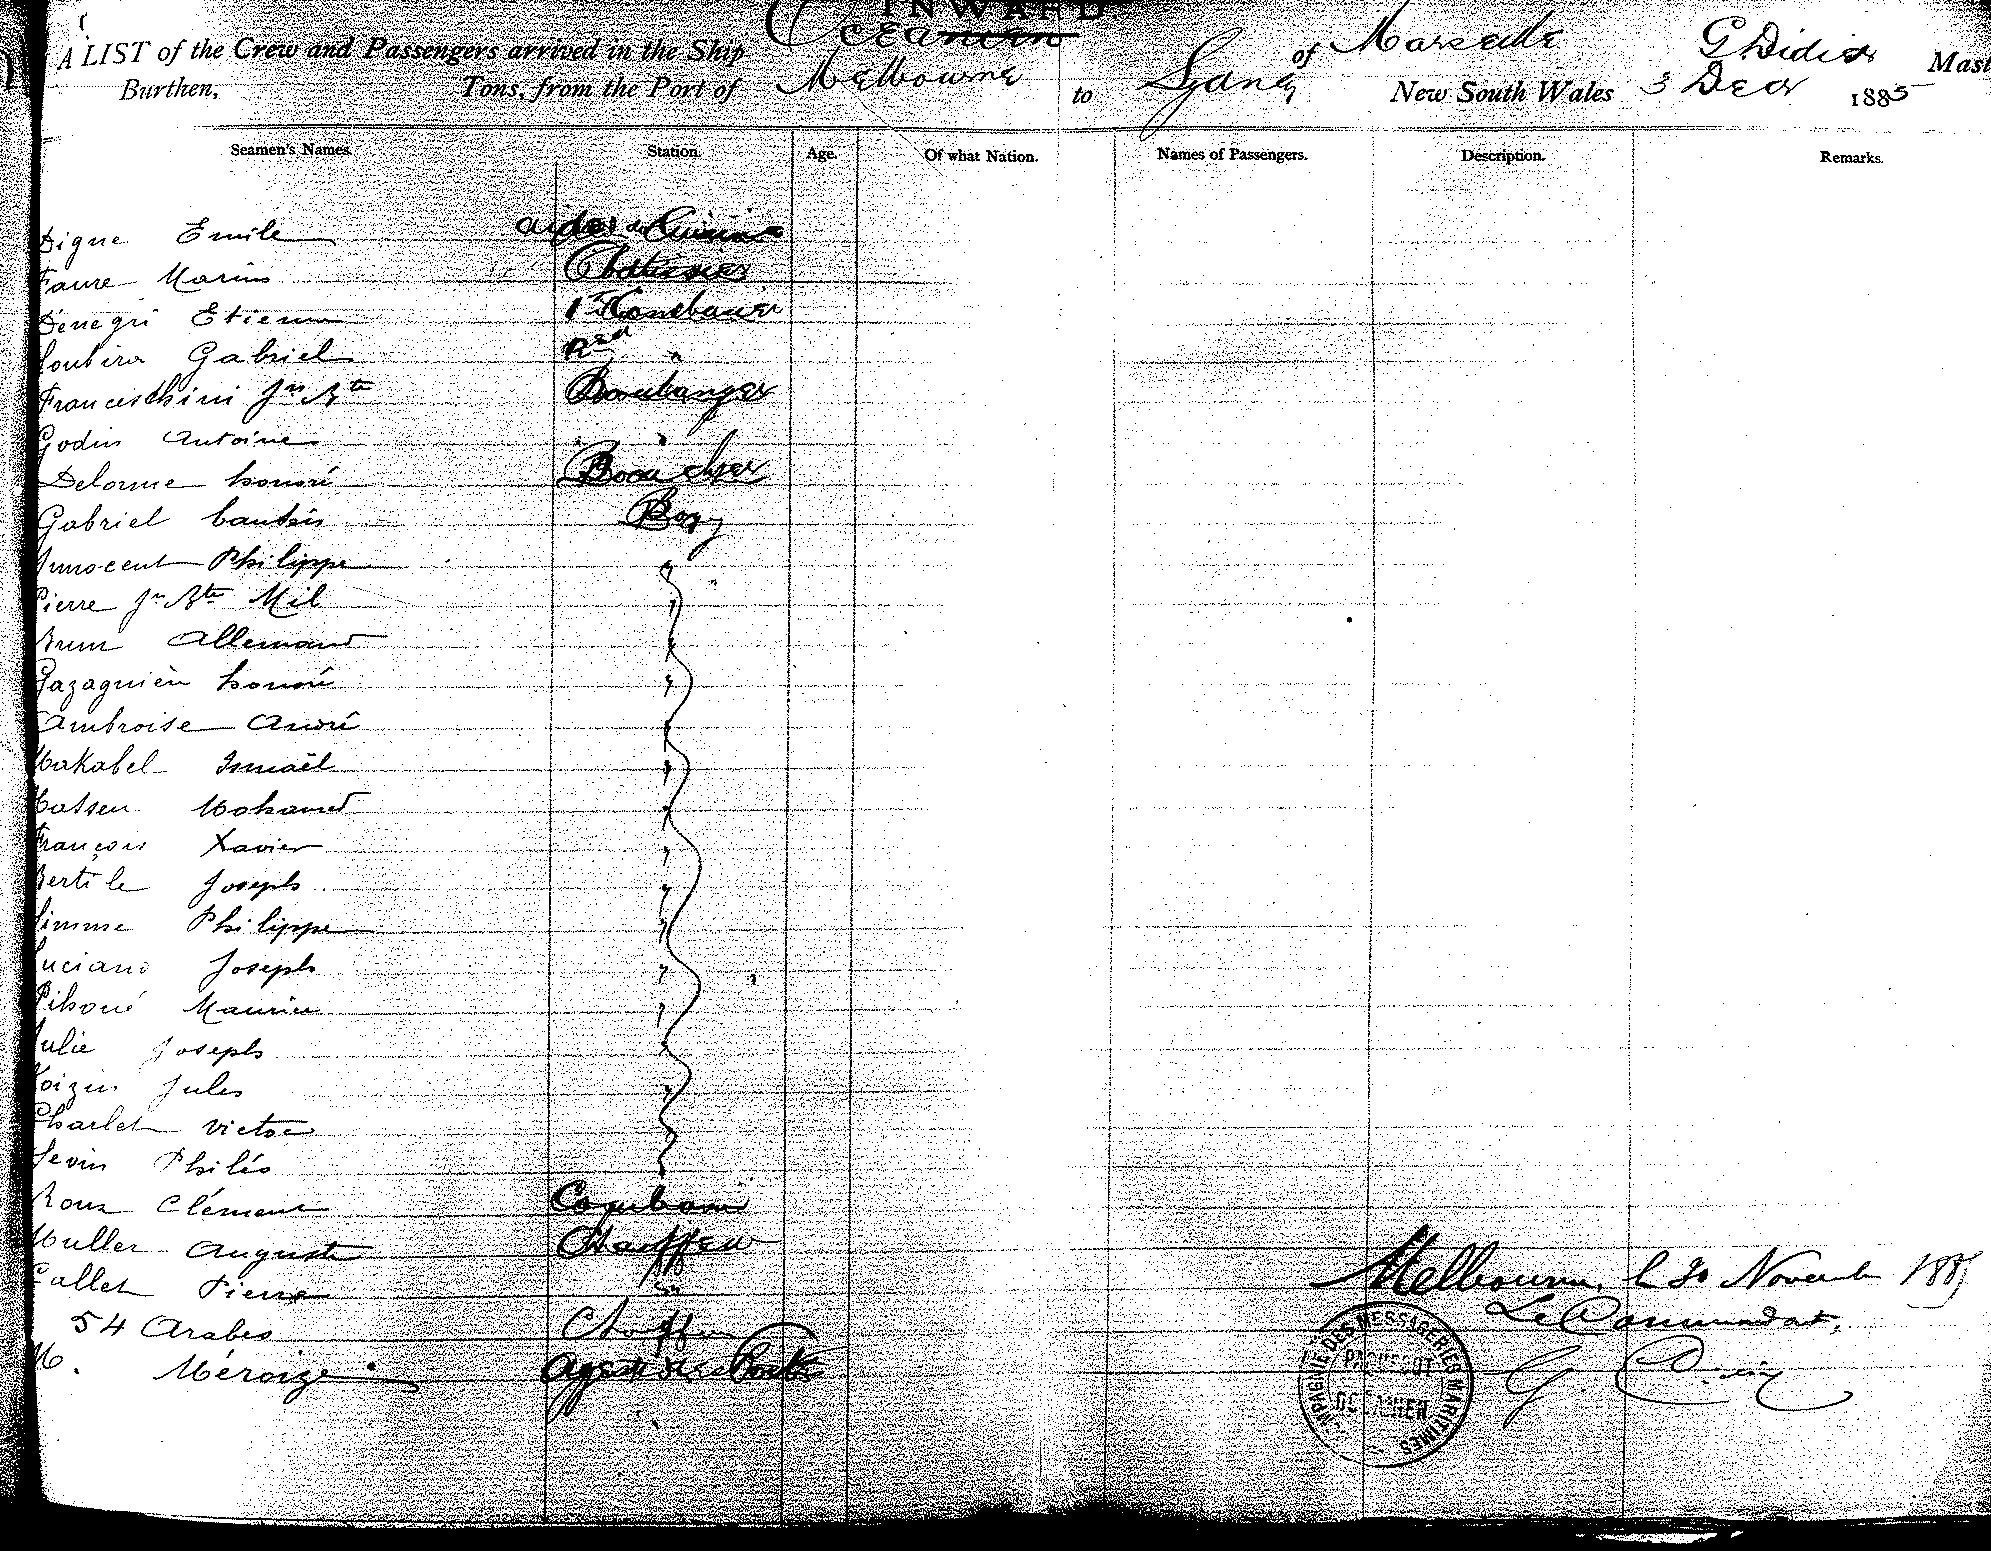 INWARD
A LIST of the Crew and Passengers arrived in the Ship Océanien of Marseille G Didier Mast
Burthen, Tons, from the Port of Melbourne to Sydney New South Wales 3 Decr 1885
Seamen's Names. Station. Age. Of what Nation. Names of Passengers. Description. Remarks.
Digne Emile aides de Cuisine
Faure Marius
Dénegri Etienne 1er
Gabriel 2nd "
Franceschini Jn Bte Boulanger
Godin Antoine "
Delorme honoré Boucher
Gabriel Boy
Innocent Philippe "
Pierre Jn Bte Mil "
Brun Allemand "
Gazagnière honoré "
Ambroise André "
Makabel Ismaël "
Hassen Mohamed "
François Xavier "
Bertile Joseph "
Simme Philippe "
Luciano Joseph "
Pihoué Maurice "
Julie Joseph "
Voizin Jules "
Charlet Victor "
Sevin Philéo "
Roux Clément Cambusier
Muller Auguste Chauffeur
Callet Pierre "
54 Arabes Chauffeurs
M. Méroize Agent des Postes
Melbourne, le 30 Novembre 1885
Le Commandant,
G. Didier
COMPAGNIE DES MESSAGERIES MARITIMES
PAQUEBOT
OCEANIEN